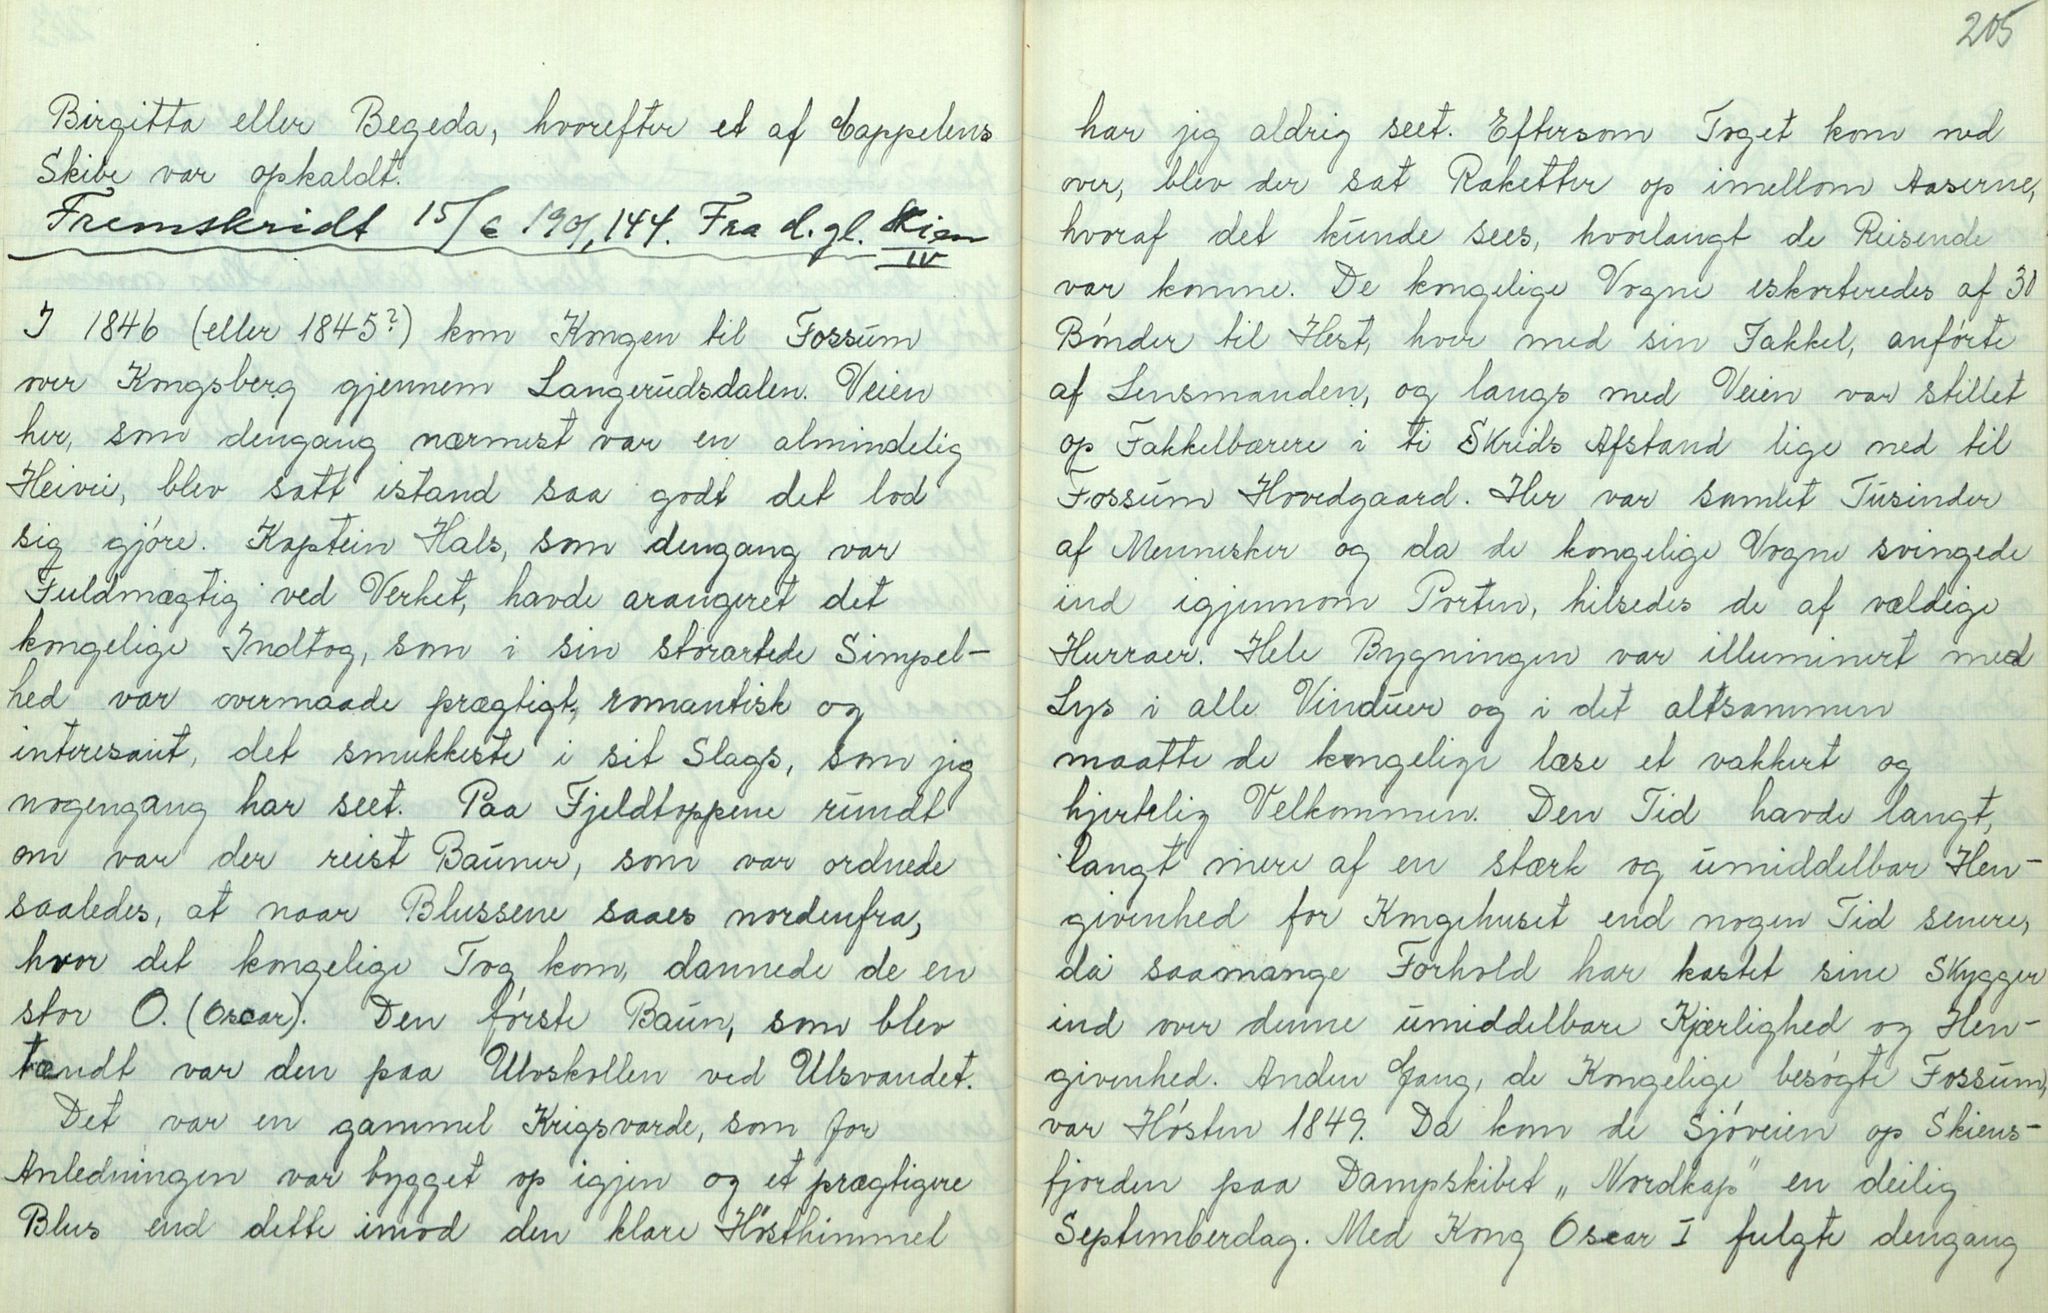 Birgitta eller Begeda, hvorefter et af Cappelens
Skibe var opkaldt.
Fremskridt 15/6 1901, 144. Fra d. gl. Skien
IV
I 1846 (eller 1845?) kom Kongen til Fossum
over Kongsberg gjennem Langerudsdalen. Veien
her, som dengang nærmest var en almindelig
Heivei, blev satt istand saa godt det lod
sig gjóre. Kaptein Hals, som dengang var
Fuldmægtig ved Verket, havde arangeret det
kongelige Indtog, som i sin storartede Simpel-
hed var overmaade prægtigt, romantisk og
interesant, det smukkeste i sit Slags, som jeg
nogengang har seet. Paa Fjeldtoppene rundt
om var der reist Bauner, som var ordnede
saaledes, at naar Blussene saaes nordenfra,
hvor det kongelige Tog kom, dannede de en
stor O. (Oscar). Den fórste Baun, som blev
tændt var den paa Ulvskollen ved Ulsvandet.
Det var en gammel Krigsvarde, som for
Anledningen var bygget op igjen og et prægtigere
Blus end dette imod den klare Hósthimmel
205
har jeg aldrig seet. Eftersom Toget kom ned
over, blev der sat Raketter op imellom Aaserne,
hvoraf det kunde sees, hvorlangt de Reisende
var komne. De kongelige Vogne eskorteredes af 30
Bónder til Hest, hver med sin Fakkel, anfórte
af Lensmanden, og langs med Veien var stillet
op Fakkelbærere i ti Skrids Afstand lige ned til
Fossum Hovedgaard. Her var samlet Tusinder
af Mennesker og da de kongelige Vogne svingede
ind igjennom Porten, hilsedes de af vældige
Hurraer. Hele Bygningen var illuminert med
Lys i alle Vinduer og i det altsammen
maatte de kongelige læse et vakkert og
hjertelig Velkommen. Den Tid havde langt,
langt mere af en stærk og umiddelbar Hen-
givenhed for Kongehuset end nogen Tid senere,
da saamange Forhold har kastet sine Skygger
ind over denne umiddelbare Kjærlighed og Hen-
givenhed. Anden Gang, de Kongelige besógte Fossum,
var Hósten 1849. Da kom de Sjóveien op Skiens-
fjorden paa Dampskibet „Nordkap" en deilig
Septemberdag. Med Kong Oscar I fulgte dengang